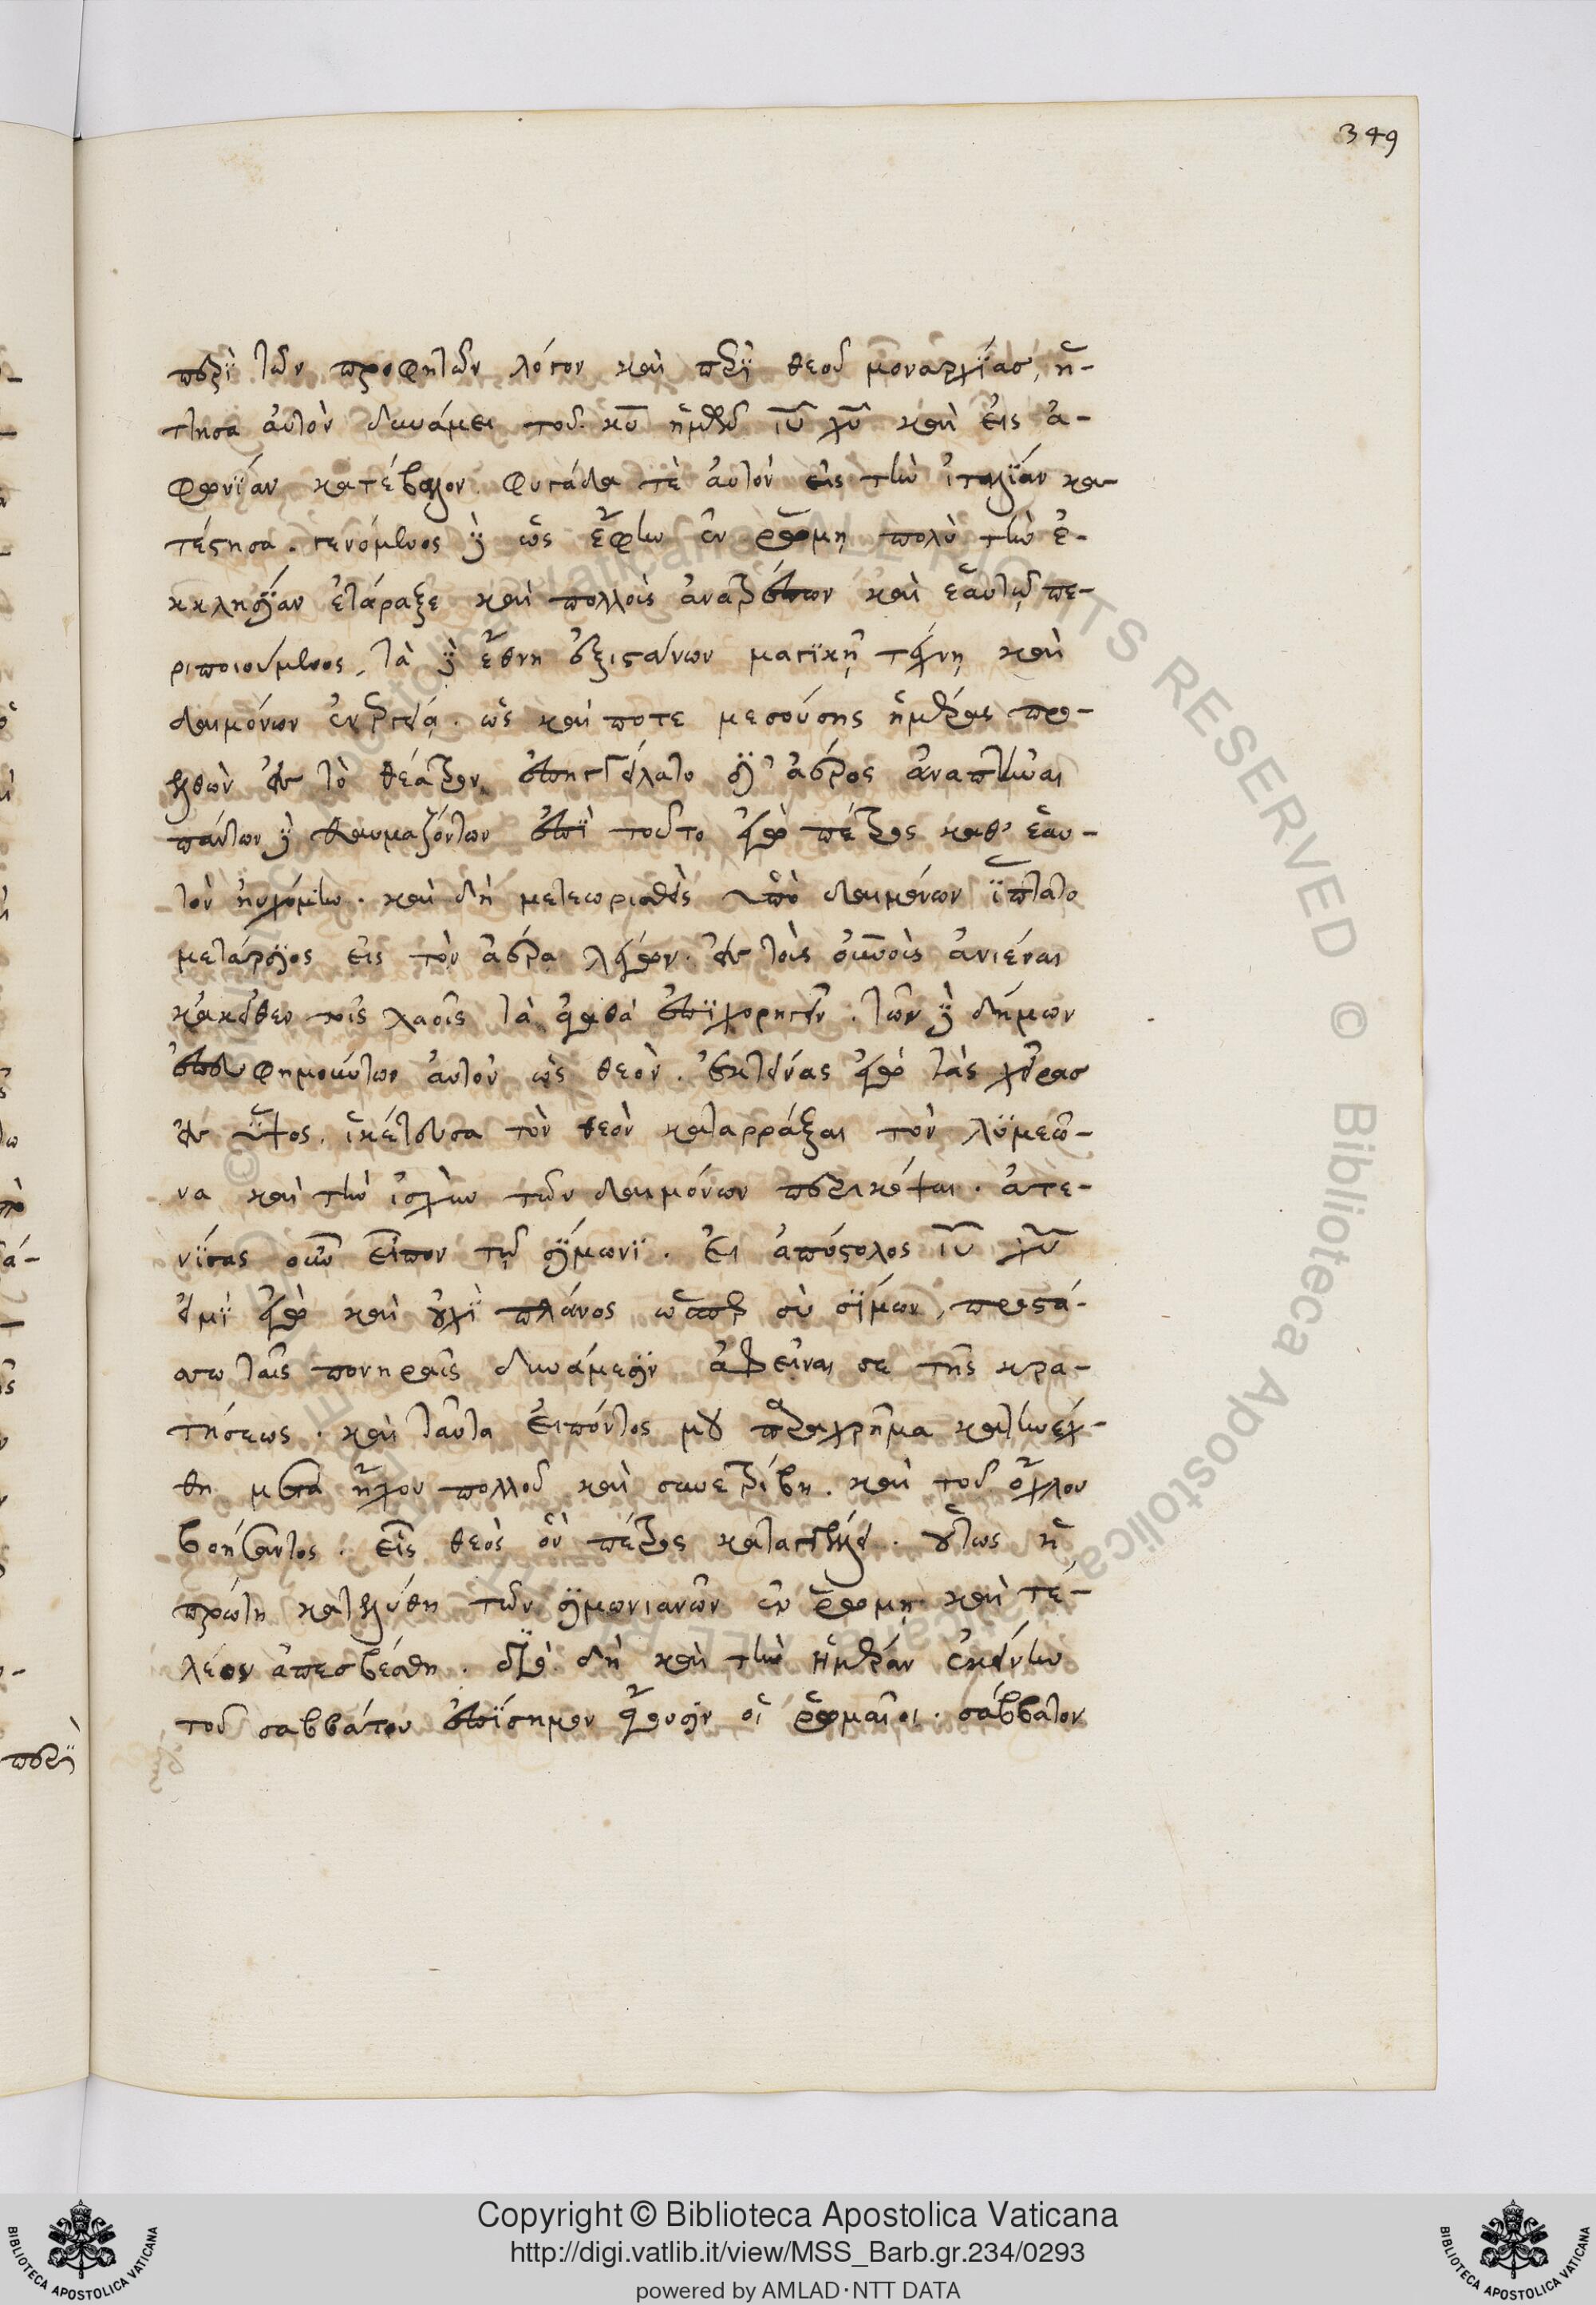 349
περὶ τῶν προφητῶν λόγον καὶ περὶ θεοῦ μοναρχίας, ἥ-
ττησα αὐτὸν δυνάμει τοῦ κῡ ἡμῶν ἰῡ χῡ καὶ εἰς ἀ-
φωνίαν κατέβαλον. φυγάδα τὲ αὐτὸν εἰς τὴν ἰταλίαν κα-
τέστησα. γενόμενος δὲ ὡς ἔφην ἐν ῥώμη πολὺ τὴν ἐ-
κκλησίαν ἐτάραξε καὶ πολλοὺς ἀνατρέπων καὶ ἑαυτῷ πε-
ριποιούμενος, τὰ δὲ ἔθνη ἐξιστάνων μαγϊκῇ τέχνη καὶ
δαιμόνων ἐνεργεία. ὡς καί ποτε μεσούσης ἡμέρας προ-
ελθὼν εἰς τὸ θέατρον ἐπηγγείλατο δι' ἀέρος ἀναπτῆναι
πάντων δὲ θαυμαζόντων ἐπὶ τοῦτο ἐγὼ πέτρος καθ' ἑαυ-
τὸν ηὐχόμην. καὶ δὴ μετεωρισθεὶς ὑπὸ δαιμόνων ἵπτατο
μετάρσιος εἰς τὸν ἀέρα λέγων. εἰς τοὺς οὐνοὺς ἀνιέναι
κἀκεῖθεν τοῖς λαοῖς τὰ ἀγαθὰ ἐπιχορηγεῖν. τῶν δὲ δήμων
ἐπευφημούντων αὐτὸν ὡς θεὸν. ἐκτείνας ἐγὼ τὰς χεῖρας
εἰς ὕψος. ἱκέτευσα τὸν θεὸν καταρράξαι τὸν λϋμεῶ-
να καὶ τὴν ἰσχὺν τῶν δαιμόνων περικόψαι. ἀτε-
νίσας οὖν εἶπον τῷ σίμωνϊ. εἰ ἀπόστολος ἰῡ χῡ
εἰμὶ ἐγὼ καὶ οὐχὶ πλάνος ὥσπερ σὺ σίμων, προστά-
σσω ταῖς πονηραῖς δυνάμεσιν ἀφεῖναι σε τῆς κρα-
τήσεως. καὶ ταῦτα εἰπόντος μου παραχρῆμα κατηνέχ-
θη μετὰ ἤχου πολλοῦ καὶ συνετρίβη. καὶ τοῦ ὄχλου
βοήσαντος. εἷς θεὸς ὃν πέτρος καταγγέλλει. οὕτως ἡ
πρώτη κατελύθη τῶν σιμωνιανῶν ἐν ῥώμη καὶ τέ-
λεον ἀπεσβέσθη. διὸ δὴ καὶ τὴν ἡμέραν ἐκείνην
τοῦ σαββάτου ἐπίσημον ἄγουσιν οἱ ῥωμαῖοι. σάββατον
περὶ
Copyright © Biblioteca Apostolica Vaticana
http://digi.vatlib.it/view/MSS_Barb.gr.234/0293
powered by AMLAD·NTT DATA